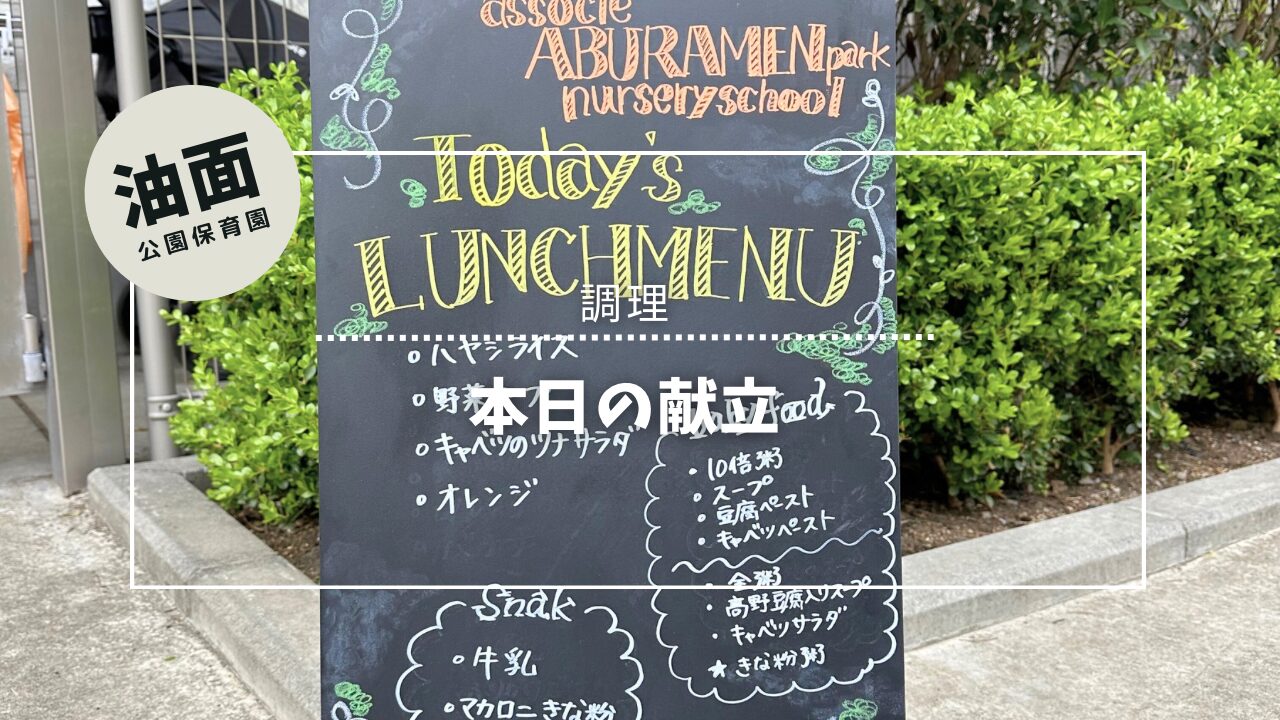 associe
ABURAMEN park
nursery school
油面
公園保育園
Today's
LUNCHMENU
調理
ハヤシライス
野菜
本日の献立
キャベツのツナサラダ
オレンジ
food
・10倍粥
・スープ
・豆腐ペースト
・キャベツペースト
・全粥
・高野豆腐入りスープ
・キャベツサラダ
★きな粉粥
Snak
・牛乳
・マカロニきな粉